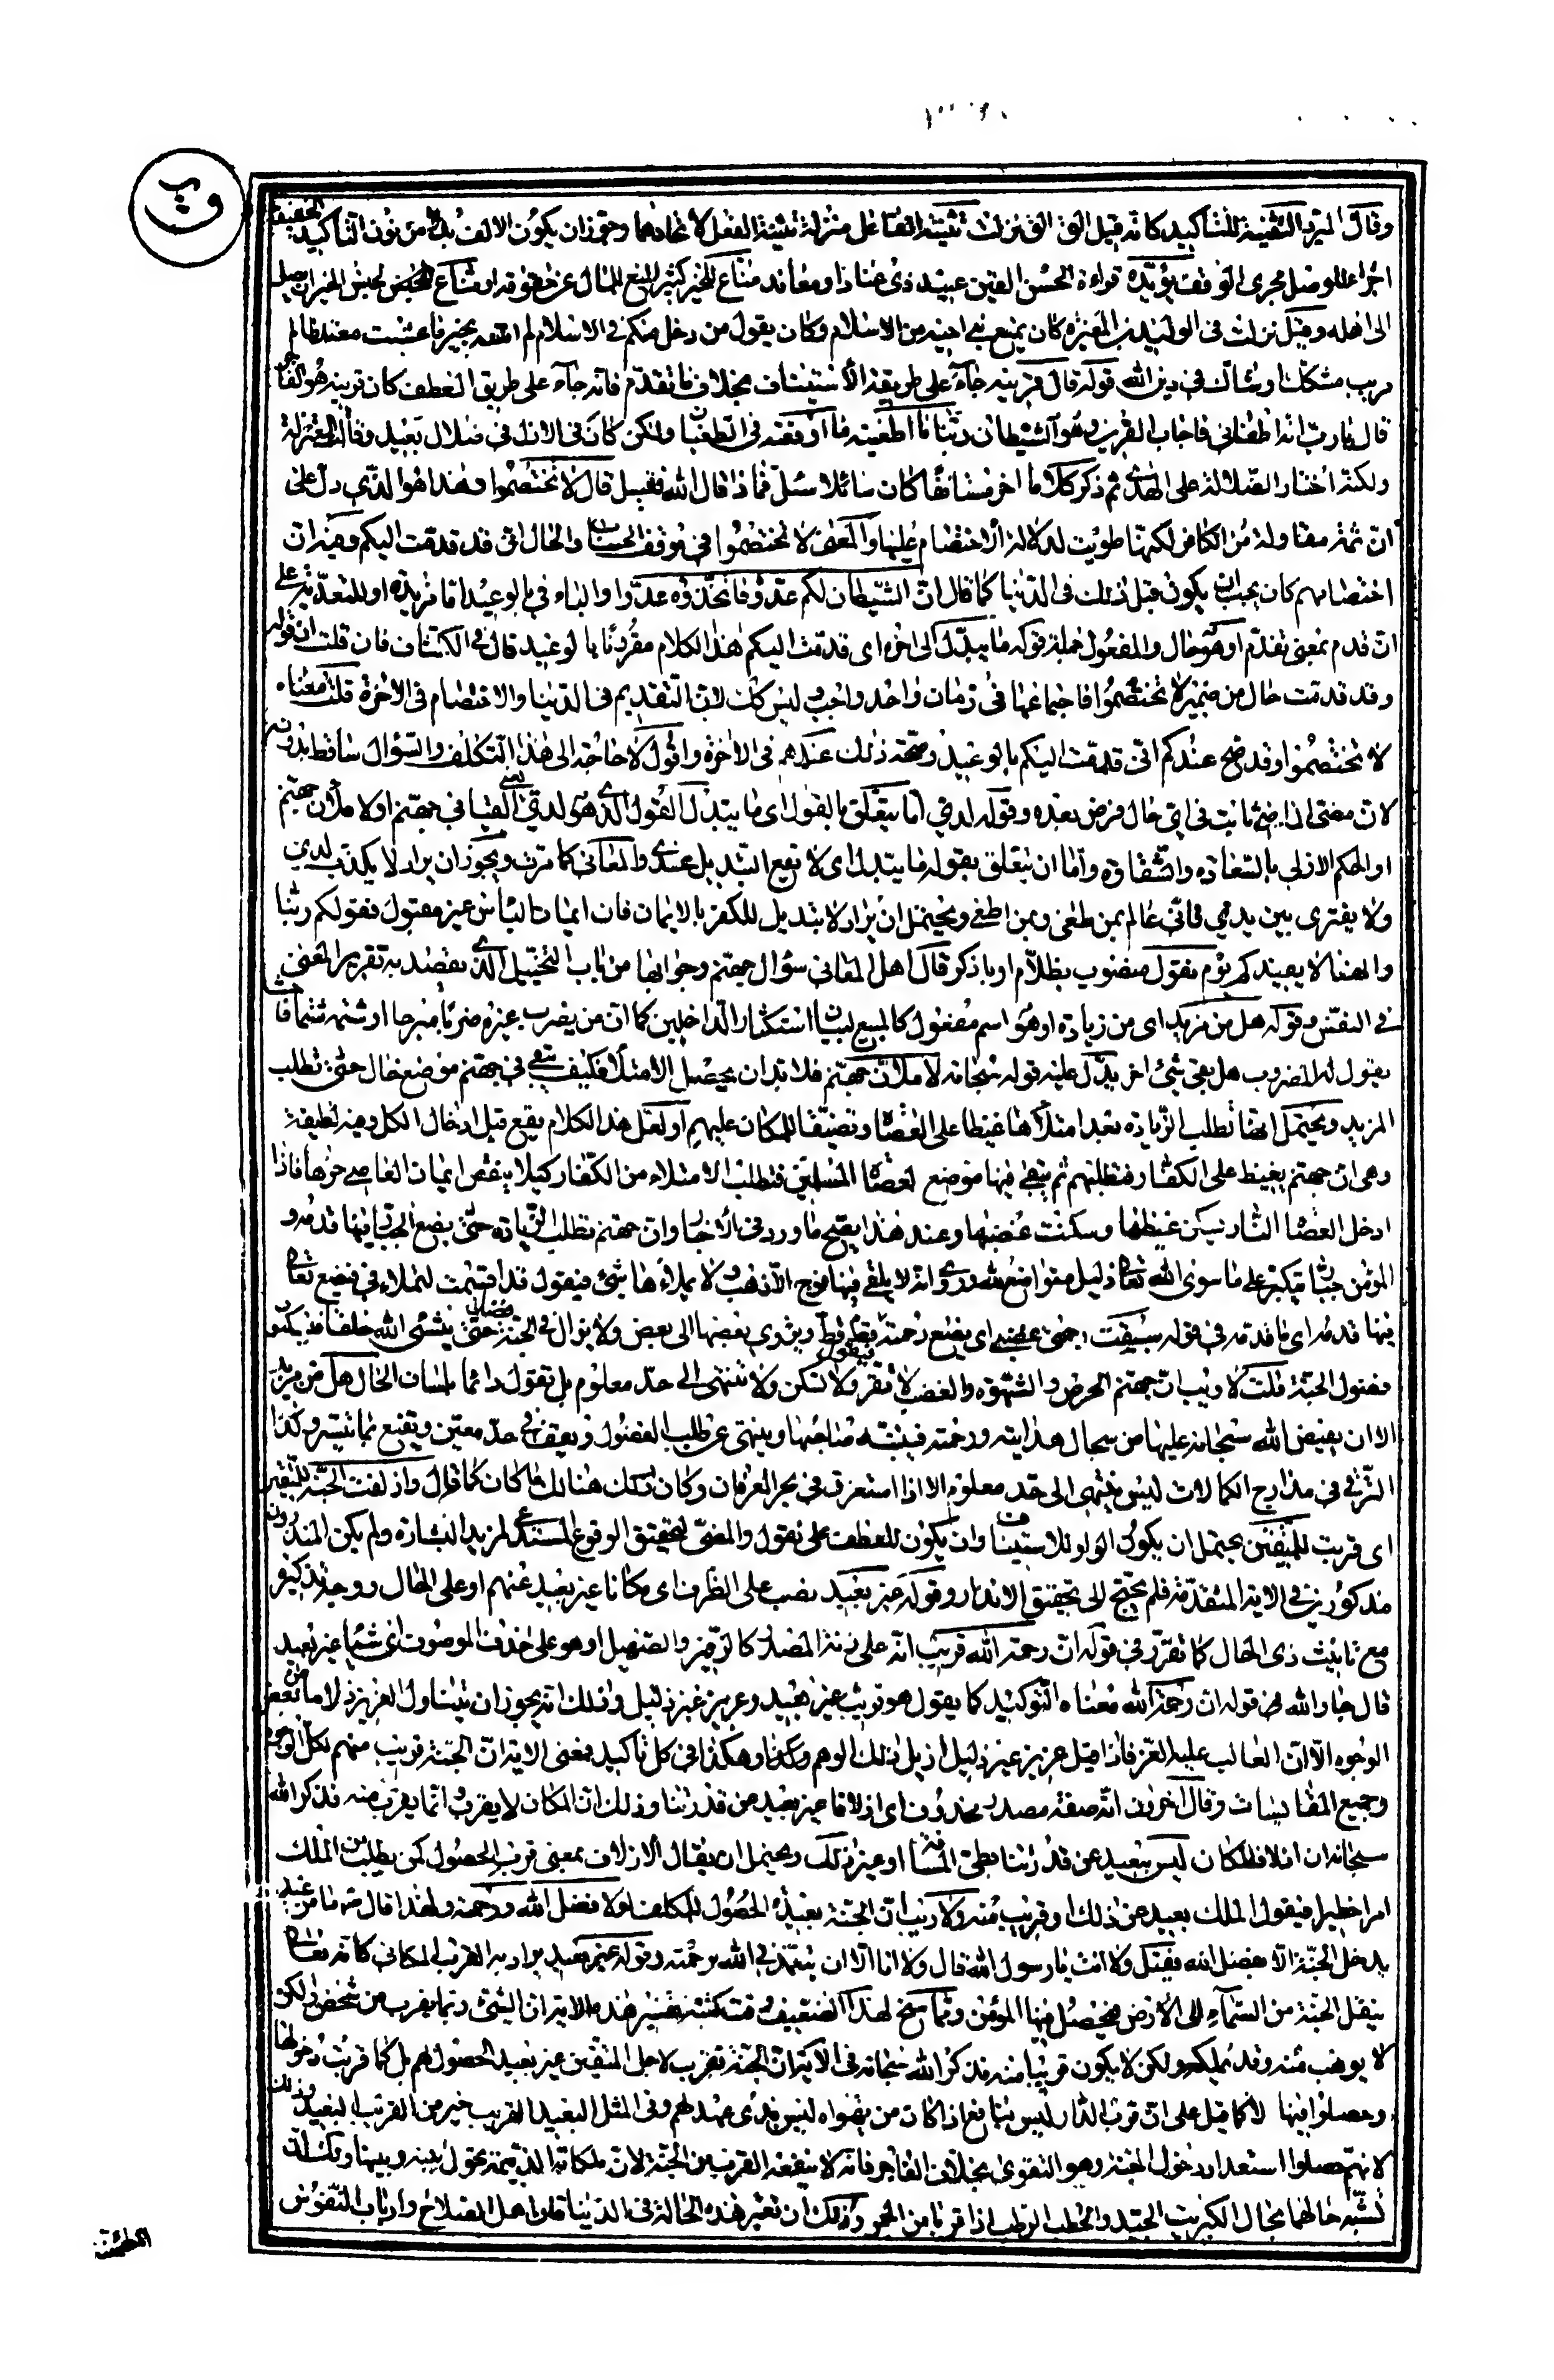 ق
وقال المبرد التثنية للتأكيد كانه قيل الق الق نزلت تثنية الفاعل منزلة تثنية الفعل لاتحادهما وجوز ان يكون الالف بدلا من نون التأكيد الخفيفة
اجراء للوصل مجرى الوقف يؤيده قراءة الحسن القين عنيد ذى عناد او معاند مناع للخير كثير المنع للمال عن حقوقه او مناع لجنس الخير ان يصل
الى اهله وقيل نزلت فى الوليد بن المغيرة كان يمنع بنى اخيه من الاسلام وكان يقول من دخل منكم فى الاسلام لم انفعه بخير ما عشت معتد ظالم
مريب مشكك او شاك فى دين الله قوله قال قرينه جاء على طريقة الاستيناف بخلاف ما تقدم فانه جاء على طريق العطف كان قرينه هو الفاجر
قال يا رب انه اطغانى فاجاب القرين وهو الشيطان ربنا ما اطغيته ما اوقعته فى الطغيان ولكن كان فى الازل فى ضلال بعيد وقالت المعتزلة
ولكنه اختار الضلالة على الهدى ثم ذكر كلاما اخر مستانفا كان سائلا سئل فماذا قال الله فقيل قال لا تختصموا وهذا هو الذى دل على
ان ثمة مقاولة من الكافر لكنها طويت لدلالة الاختصام عليها والمعنى لا تختصموا فى موقف الحساب والحال انى قد قدمت اليكم وفيه ان
اختصامهم كان يجب ان يكون قبل ذلك فى الدنيا كما قال ان الشيطان لكم عدو فاتخذوه عدوا والباء فى بالوعيد اما مزيدة او للتعدية على
ان قدم بمعنى تقدم او هو حال والمفعول جملة قوله ما يبدل الى اخره اى قدمت اليكم هذا الكلام مقرونا بالوعيد قال فى الكشاف فان قلت ان قوله
وقد قدمت حال من ضمير لا تختصموا فاجتماعهما فى زمان واحد واجب وليس كذلك لان التقديم فى الدنيا والاختصام فى الاخرة قلت معناه
لا تختصموا وقد صح عندكم انى قدمت اليكم بالوعيد وصحة ذلك عندهم فى الاخرة واقول لا حاجة الى هذا التكلف والسؤال ساقط بدونه
لان مضى الماضى ثابت فى اى حال فرض بعده وقوله لدى اما يتعلق بالقول اى ما يبدل القول الذى هو لدى يعنى القيا فى جهنم او لاملأن جهنم
او الحكم الازلى بالسعادة والشقاوة واما ان يتعلق بقوله ما يبدل اى لا تقع التبديل عندى والمعانى كما مرت ويجوز ان يراد لا يكذب لدى
ولا يفترى بين يدى فانى عالم بمن طغى وبمن اطغى ويحتمل ان يراد لا تبديل للكفر بالايمان فان ايمان اليأس غير مقبول فقولكم ربنا
والهنا لا يفيدكم يوم نقول منصوب بظلام او باذكر قال اهل المعانى سؤال جهنم وجوابها من باب التخييل الذى يقصد به تقرير المعنى
فى النفس وقوله هل من مزيد اى من زيادة او هو اسم مفعول كالمبيع لبيان استكثار الداخلين كما ان من يضرب غيره ضربا مبرحا او شتمه شتما فاحشا
يقول له المضروب هل بقى شئ اخر يدل عليه قوله سبحانه لاملأن جهنم فلا بد ان يحصل الامتلاء فكيف يبقى فى جهنم موضع خال حتى تطلب
المزيد ويحتمل انها تطلب الزيادة بعد امتلائها غيظا على العصاة وتضييقا للمكان عليهم او لعل هذا الكلام يقع قبل ادخال الكل وفيه لطيفة
وهى ان جهنم يغيظ على الكفار فتطلبهم ثم يبقى فيها موضع لعصاة المسلمين فتطلب الامتلاء من الكفار كيلا ينقص ايمان العاصى حرها فاذا
ادخل العصاة النار سكن غيظها وسكنت غضبها وعند هذا يصح ما ورد فى الاخبار وان جهنم تطلب الزيادة حتى يضع الجبار فيها قدمه و
المؤمن جبار يتكبر على ما سوى الله تعالى ذليل متواضع لله وروى انه لا يلقى فيها فوج الا ذهب ولا يملاءها شئ فيقول قد اقسمت لتملاءنى فيضع تعالى
فيها قدمه اى ما قدمه فى قوله سبقت رحمتى غضبى اى يضع رحمة فتقول قط قط ويزوى بعضها الى بعض ولا يزال فى الجنة فضل حتى ينشئ الله خلقا فيسكنون
فضول الجنة قلت لا ريب ان جهنم الحرص والشهوة والغضب لا تقر ولا تسكن ولا تنتهى الى حد معلوم بل تقول دائما بلسان الحال هل من مزيد
الا ان يفيض الله سبحانه عليها من سجال هدايته ورحمته فينتبه صاحبها وينتهى عن طلب الفضول ويقف فى حد معين ويقنع بما تيسر وكذا
الترقى فى مدارج الكمالات ليس ينتهى الى حد معلوم الا اذا استغرق فى بحر العرفان وكان هنالك ما كان كما قال وازلفت الجنة للمتقين
اى قربت للمتقين يحتمل ان يكون الواو للاستيناف وان يكون للعطف على نقول والمضى لتحقق الوقوع المستدعى لمزيد البشارة ولم يكن المنذرون
مذكورين فى الاية المتقدمة فلم يحتج الى تحقيق الانذار وقوله غير بعيد نصب على الظرف اى مكانا غير بعيد عنهم او على الحال ووجه تذكيره
مع تانيث ذى الحال كما تقرر فى قوله ان رحمة الله قريب انه على زنة المصدر كالزفير والصهيل او هو على حذف الموصوف اى شيئا غير بعيد
قال جار الله فى قوله ان رحمة الله معناه التوكيد كما يقول هو قريب غير بعيد وعزيز غير ذليل وذلك انه يجوز ان يتناول العزيز ذلا ما من بعض
الوجوه الا ان الغالب عليه العز فاذا قيل عزيز غير ذليل ازيل ذلك الوهم وهكذا فى كل تأكيد فمعنى الاية ان الجنة قريب منهم بكل الوجوه
وجميع المقايسات وقال اخرون انه صفة مصدر محذوف اى ازلافا غير بعيد من قدرتنا وذلك ان المكان لا يقرب وانما يقرب منه فذكر الله
سبحانه ان ازلاف المكان ليس ببعيد عن قدرتنا بطى المسافة او غير ذلك ويحتمل ان يقال الازلاف بمعنى قرب الحصول كمن يطلب من الملك
امرا خطيرا فيقول الملك بعيد عن ذلك او قريب منه ولا ريب ان الجنة بعيدة الحصول للمكلف لولا فضل الله ورحمته ولهذا قال ما من عبد
يدخل الجنة الا بفضل الله فقيل ولا انت يا رسول الله قال ولا انا الا ان يتغمدنى الله برحمته وقوله غير بعيد يراد به القرب المكانى كانه تعالى
ينقل الجنة من السماء الى الارض فيحصل فيها المؤمن ومما سنح لهذا الضعيف وقت كتبة تفسير هذه الاية ان الشئ ربما يقرب من شخص ولكن
لا يوهب منه وقد يملكه ولكن لا يكون قريبا منه فذكر الله سبحانه فى الاية ان الجنة تقرب لاجل المتقين غير بعيد الحصول لهم بل كما قربت دخولها
وحصلوا فيها لا كما قيل على ان قرب الدار ليس بنافع اذا كان من يهواه ليس بذى عهد لهم وفى المثل البعيد القريب خير من القريب البعيد وذلك
لانهم حصلوا استعداد دخول الجنة وهو التقوى بخلاف الفاجر فانه لا ينفعه القرب من الجنة لان ملكاته الذميمة تحول بينه وبينها وتلك
تشبه حالهما بحال الكبريت الجيد والحطب الرطب اذا قربا من الجمر وذلك ان تعتبر هذه الحالة فى الدنيا فان اهل الصلاح وارباب النفوس
المطمئنة